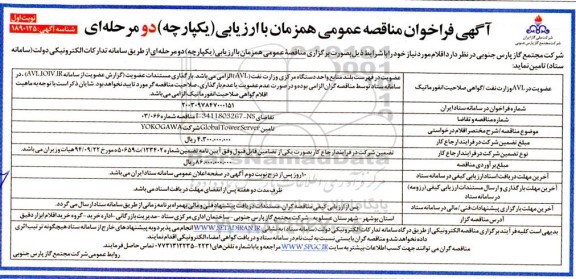 نوبت اول
شناسه آگهی: ۱۸۹۰۱۳۵
آگهی فراخوان مناقصه عمومی همزمان با ارزیابی (یکپارچه) دو مرحله‌ای
شرکت مجتمع گاز پارس جنوبی در نظر دارد اقلام مورد نیاز خود را با شرایط ذیل بصورت برگزاری مناقصه عمومی همزمان با ارزیابی (یکپارچه) دو مرحله‌ای از طریق سامانه تدارکات الکترونیکی دولت (سامانه ستاد) تامین نماید:
عضویت در AVL وزارت نفت / گواهی صلاحیت انفورماتیک
عضویت در فهرست بلند منابع واحد دستگاه مرکزی وزارت نفت (AVL) الزامی می باشد. بارگذاری مستندات عضویت (گزارش عضویت از سامانه AVL.IOIV.IR) در
سامانه ستاد توسط مناقصه گران الزامی بوده و در صورت عدم عضویت یا عدم بارگذاری، صلاحیت مناقصه گر مورد تایید نخواهد بود.
شماره فراخوان در سامانه ستاد ایران
۲۰۰۳۰۹۷۸۴۷۰۰۰۱۵۱
شماره مناقصه و تقاضا
تقاضای E-3411803267-NS مناقصه شماره ۰۳/۰۶۶
موضوع مناقصه / شرح مختصر اقلام درخواستی
تامین Global Tower Server شرکت YOKOGAWA
مبلغ تضمین شرکت در فرایند ارجاع کار
۴،۳۰۰،۰۰۰،۰۰۰ ریال
نوع تضمین شرکت در فرایند ارجاع کار
تضمین شرکت در فرایند ارجاع کار بصورت یکی از تضامین قابل قبول وفق آیین نامه تضمین شماره ۱۲۳۴۰۲/ت۵۰۶۵۹ه مورخ ۹۴/۰۹/۲۲ هیات وزیران می باشد
مبلغ برآوردی مناقصه
۸۶،۰۰۰،۰۰۰،۰۰۰ ریال
آخرین مهلت دریافت اسناد ارزیابی کیفی در سامانه ستاد
۱۰ روز پس از درج نوبت دوم آگهی در صفحه اعلان عمومی سامانه ستاد ایران می باشد.
آخرین مهلت بارگذاری و ارسال مستندات ارزیابی کیفی (رزومه) در سامانه ستاد
ظرف مدت دو هفته پس از انقضای مهلت دریافت اسناد می باشد
آخرین مهلت بارگزاری پیشنهادات فنی / مالی در سامانه ستاد
آدرس مناقصه گزار
استان بوشهر - شهرستان عسلویه - شرکت مجتمع گاز پارس جنوبی - ساختمان اداری مرکزی ستاد - مدیریت بازرگانی - اداره خرید - گروه خرید اقلام ابزار دقیق
مناقصه گران می توانند جهت کسب اطلاعات بیشتر به سایت WWW.SPGC.IR مراجعه و یا با شماره تلفن های ۲۲۳۱-۰۷۷۳۱۳۱۲۲۳۵ تماس حاصل فرمایند.
روابط عمومی شرکت مجتمع گاز پارس جنوبی